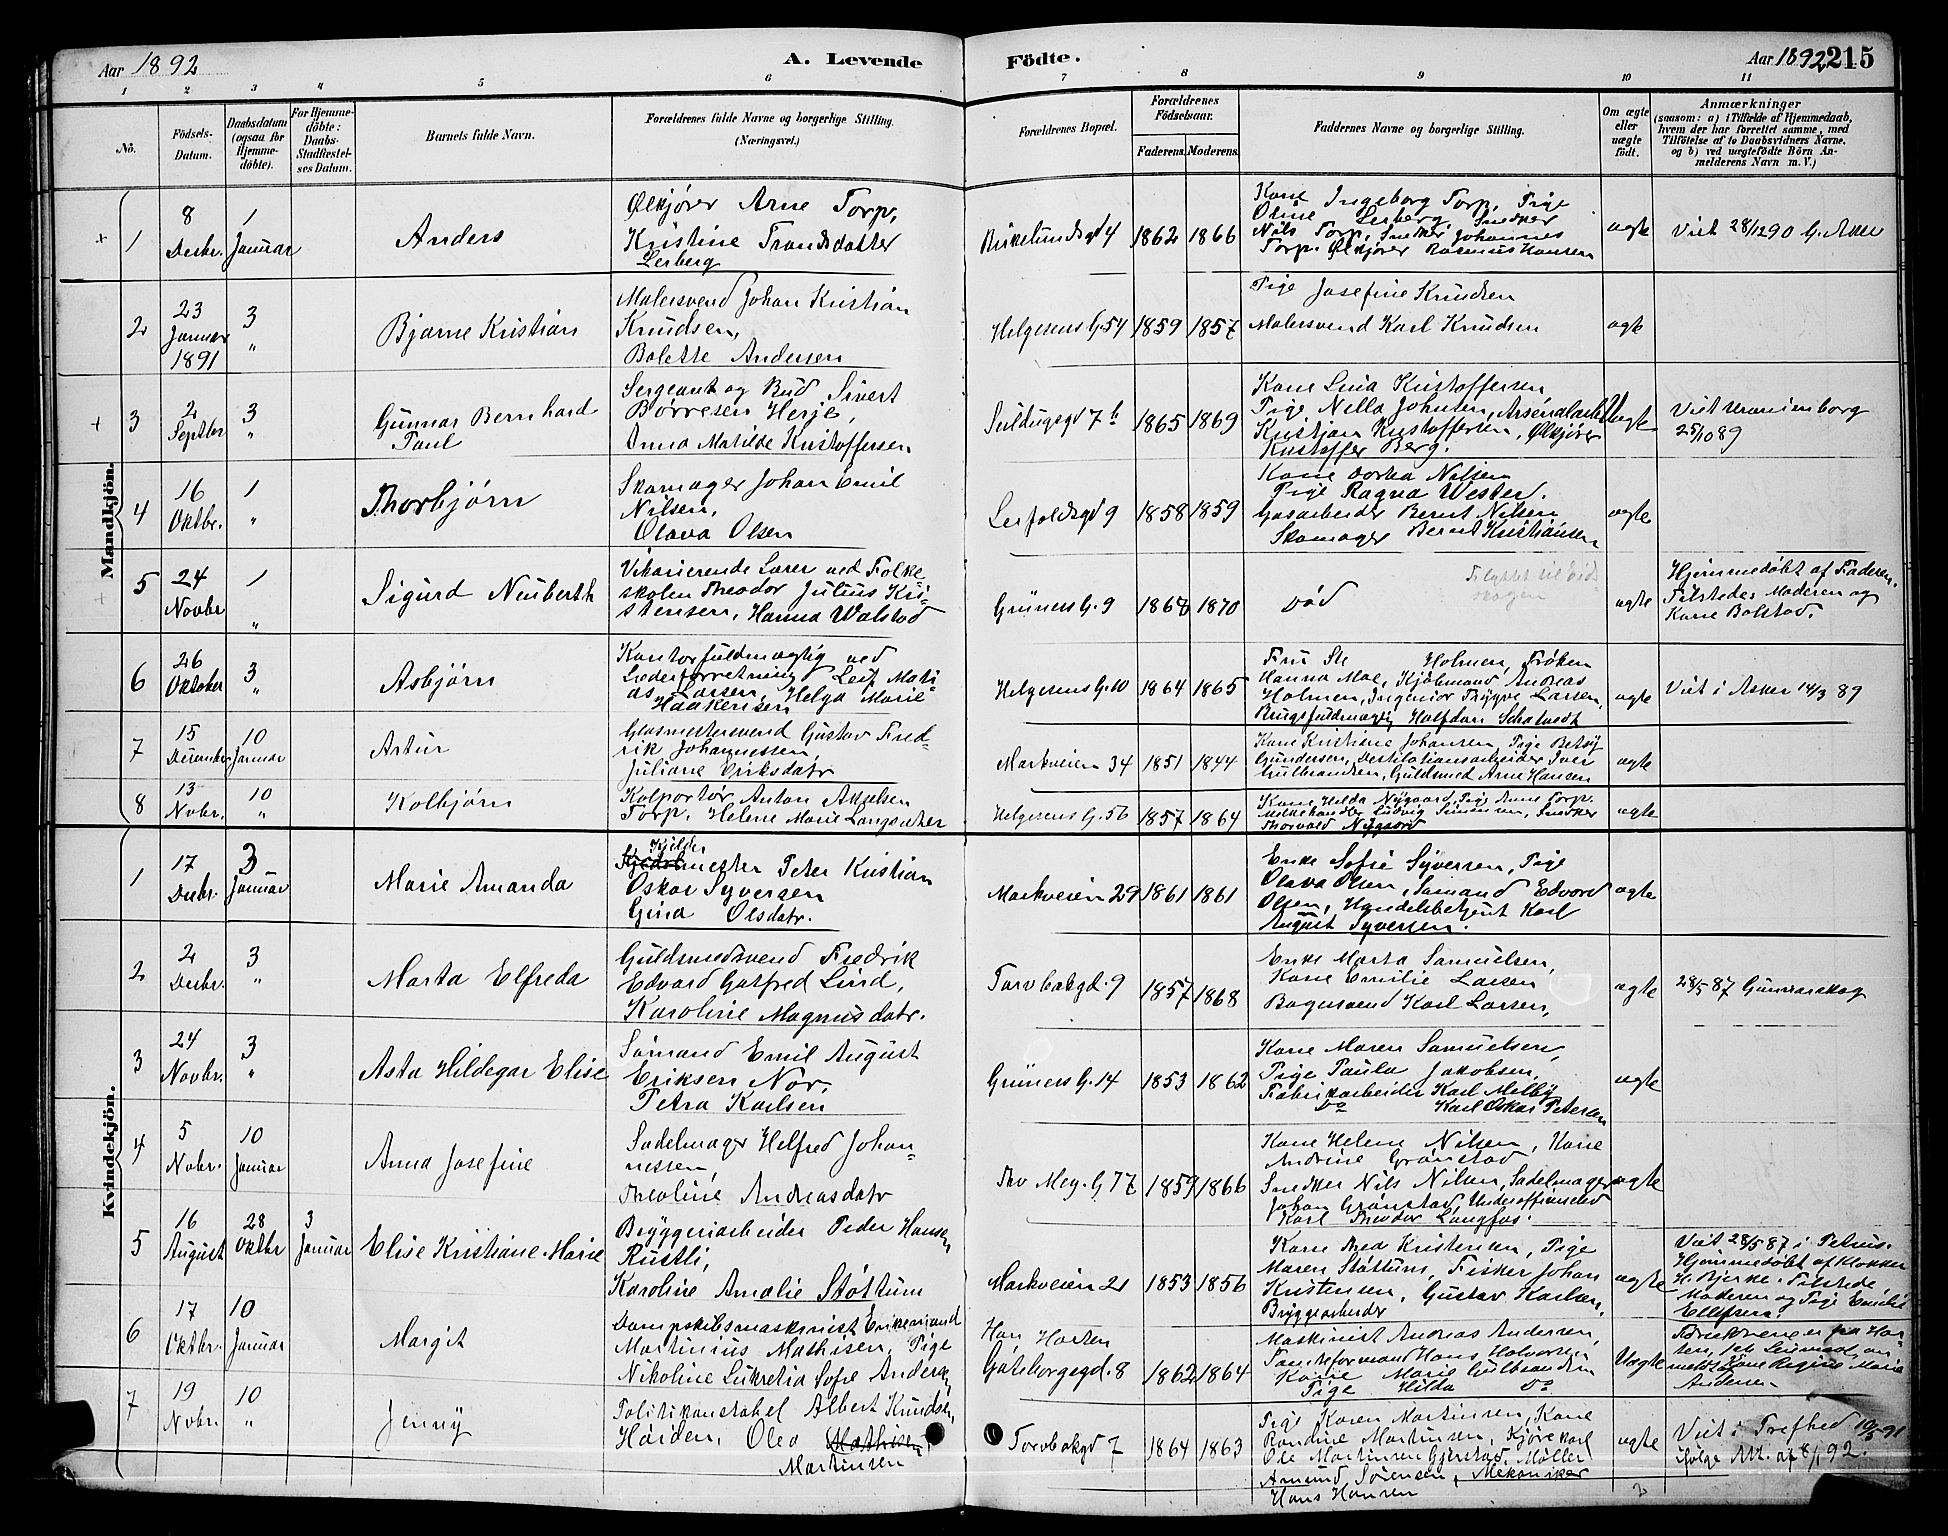 Aar 1892
A. Levende
Födte.
Aar 1892
215
1 2 3 4 5 6 7 8 9 10 11
No.
Födsels-
Datum.
Daabsdatum
(ogsaa for
Hjemme-
döbte).
For Hjemme-
döbte:
Daabs-
Stadfæstel-
ses Datum.
Barnets fulde Navn.
Forældrenes fulde Navne og borgerlige Stilling.
(Næringsvei.)
Forældrenes Bopæl.
Forældrenes
Födselsaar.
Faderens. Moderens.
Faddernes Navne og borgerlige Stilling.
Om ægte
eller
uægte
födt.
Anmærkninger
(saasom: a) i Tilfælde af Hjemmedaab,
hvem der har forrettet samme, med
Tilföielse af to Daabsvidners Navne.
og b) ved uægtefödte Börn An-
melderens Navn m. V.)
Mandkjön.
+ 1
8
Decbr.
1
Januar
Anders
Ølkjører Arne Torp,
Kristine Trondsdatter
Lerberg
Birkelundsgd 4
1862 1866
Kone Ingeborg Torp, Pige
Oline Lerberg, Snedker
Nils Torp, Snedker Johannes
Torp. Ølkjører Rasmus Hansen
ægte
Viet 28/12 90 G. Aker
2
23
Januar
1891
3
"
Bjarne Kristian
Malersvend Johan Kristian
Knudsen,
Bolette Andersen
Helgesens G. 54
1859 1857
Pige Josefine Knudsen
Malersvend Karl Knudsen
ægte
+ 3
2
Septbr
3
"
Gunnar Bernhard
Paul
Sergeant og Bud Sivert
Børresen Herje,
Anna Matilde Kristoffersen
7 b
1865 1869
Kone Lina Kristoffersen
Pige Nella Johnsen, Arsenalarb.
Kristian Kristoffersen, Ølkjører
Kristoffer Berg.
Uægte
Viet Uranienborg
25/10 89
4
16
Oktbr.
1
"
Thorbjørn
Skomager Johan Emil
Nilsen,
Olava Olsen
Leirfaldsgd 9
1858 1859
Kone Dortea Nilsen
Pige Ragna Wester.
Gasarbeider Bernt Nilsen
Skomager Bernt Kristiansen
ægte
+ 5
24
Novbr
1
"
Sigurd Neuberth
Vikarierende Lærer ved Folke
skolen Theodor Julius Kri-
stensen, Hanna Walstad
Grüners G. 9
1868 1870
Død
Flyttet til Eid
skogen
ægte
Hjemmedøbt af Faderen.
Tilstede: Moderen og
Kone Bolstad.
6
26
Oktober
3
"
Asbjørn
Kontorfuldmægtig ved
Læderforretning Leif Mati-
as Larsen, Helga Marie
Haakensen
Helgesens G. 10
1864 1865
Fru Holmen, Frøken
Hanna Moe, Kjøbmand Andreas
Holmen, Ingeniør Thrygve Larsen,
Brugsfuldmægtig Halfdan
ægte
Viet i Asker 14/3 89
7
15
December
10
Januar
Artur
Glasmestersvend Gustav Fred-
rik Johannessen,
Juliane Eriksdatr
Markveien 34
1851 1844
Kone Kristiane Johansen, Pige Betsy
Gundersen, Destilationsarbeider Iver
Gulbrandsen, Guldsmed Arne Hansen
ægte
8
13
Novbr.
10
"
Kolbjørn
Kolportør Anton Akselsen
Torp, Helene Marie Langsæther
Helgesens G. 56
1857 1864
Kone Hilda Nygaard, Pige Anne Torp.
Melkehandler Ludvig Simensen, Snedker
Thorvald Nygaard
ægte
Kvindekjön.
1
17
Decbr.
3
Januar
Marie Amanda
Kjelder
mester Peter Kristian
Oskar Syversen
Gina Olsdatr.
Markveien 29
1861 1861
Enke Sofie Syversen, Pige
Olava Olsen, Sømand Edvard
Olsen, Handelsbetjent Karl
August Syversen.
ægte
2
2
Decbr.
3
"
Marta Elfreda
Guldsmedsvend Fredrik
Edvard Gotfred Lind,
Karoline Magnusdatr.
Torvbakgd. 9
1857 1868
Enke Marta Samuelsen,
Kone Emilie Larsen
Bagersvend Karl Larsen,
ægte
28/5 87 Gunnarskog
3
24
Novbr.
3
"
Asta Hildegar Elise
Sømand Emil August
Eriksen Nor.
Petra Karlsen
Grüners G. 14
1853 1862
Kone Maren Samuelsen,
Pige Paula Jakobsen,
Fabrikarbeider Karl Melby
Do Karl Oskar Petersen
ægte
4
5
Novbr.
10
Januar
Anna Josefine
Sadelmager Helfred Johan-
nessen,
Theoline Andreasdatr
Thv Mey. G 77
1859 1866
Kone Helene Nilsen, Kone
Andrine Grønstad
Snedker Nils Nilsen, Sadelmager
Johan Grønstad, Underofficerselev
Karl Theodor Langfos.
ægte
5
16
August
28
Oktbr
3
Januar
Elise Kristiane Marie
Bryggeriarbeider Peder Hansen
Rustli,
Karoline Amalie Støttum
Markveien 21
1853 1856
Kone Thea Kristensen, Pige
Maren Støttum, Fisker Johan
Kristensen, Gustav Karlsen,
Bryggearbeider
ægte
Viet 28/5 87 i Petrus.
Hjemmedøbt af Klokker
H. Bjerke. Tilstede
Moderen og Pige Emilie
Ellefsen.
6
17
Oktbr.
10
Januar
Margit
Dampskibsmaskinist Enkemand
Martinius Mathisen, Pige
Nikoline Lukretia Sofie Andersen
Han Horten
Gøteborgsgd. 8
1862 1864
Maskinist Andreas Andersen,
Hans Halvorsen
Kone Marie Gulbrandsen
Pige Hilda Do
Uægte
Forældrene er fra Hor-
ten, an-
meldt Kone Regine Marie
Andersen
7
19
Novbr.
10
"
Jenny
Politikonstabel Albert Knudsen
Haiden, Olea Mathisen
Martinsen
Torvbakgd 7
1864 1863
Pige Karen Martinsen, Kone
Randine Martinsen, Kjørekarl
Ole Martinsen Gjerstad, Møller
Amund Sørensen, Mekaniker
Hans Hansen
ægte
Viet i Trefhed. 10/5 91
ifølge Att. af 8/1 92.